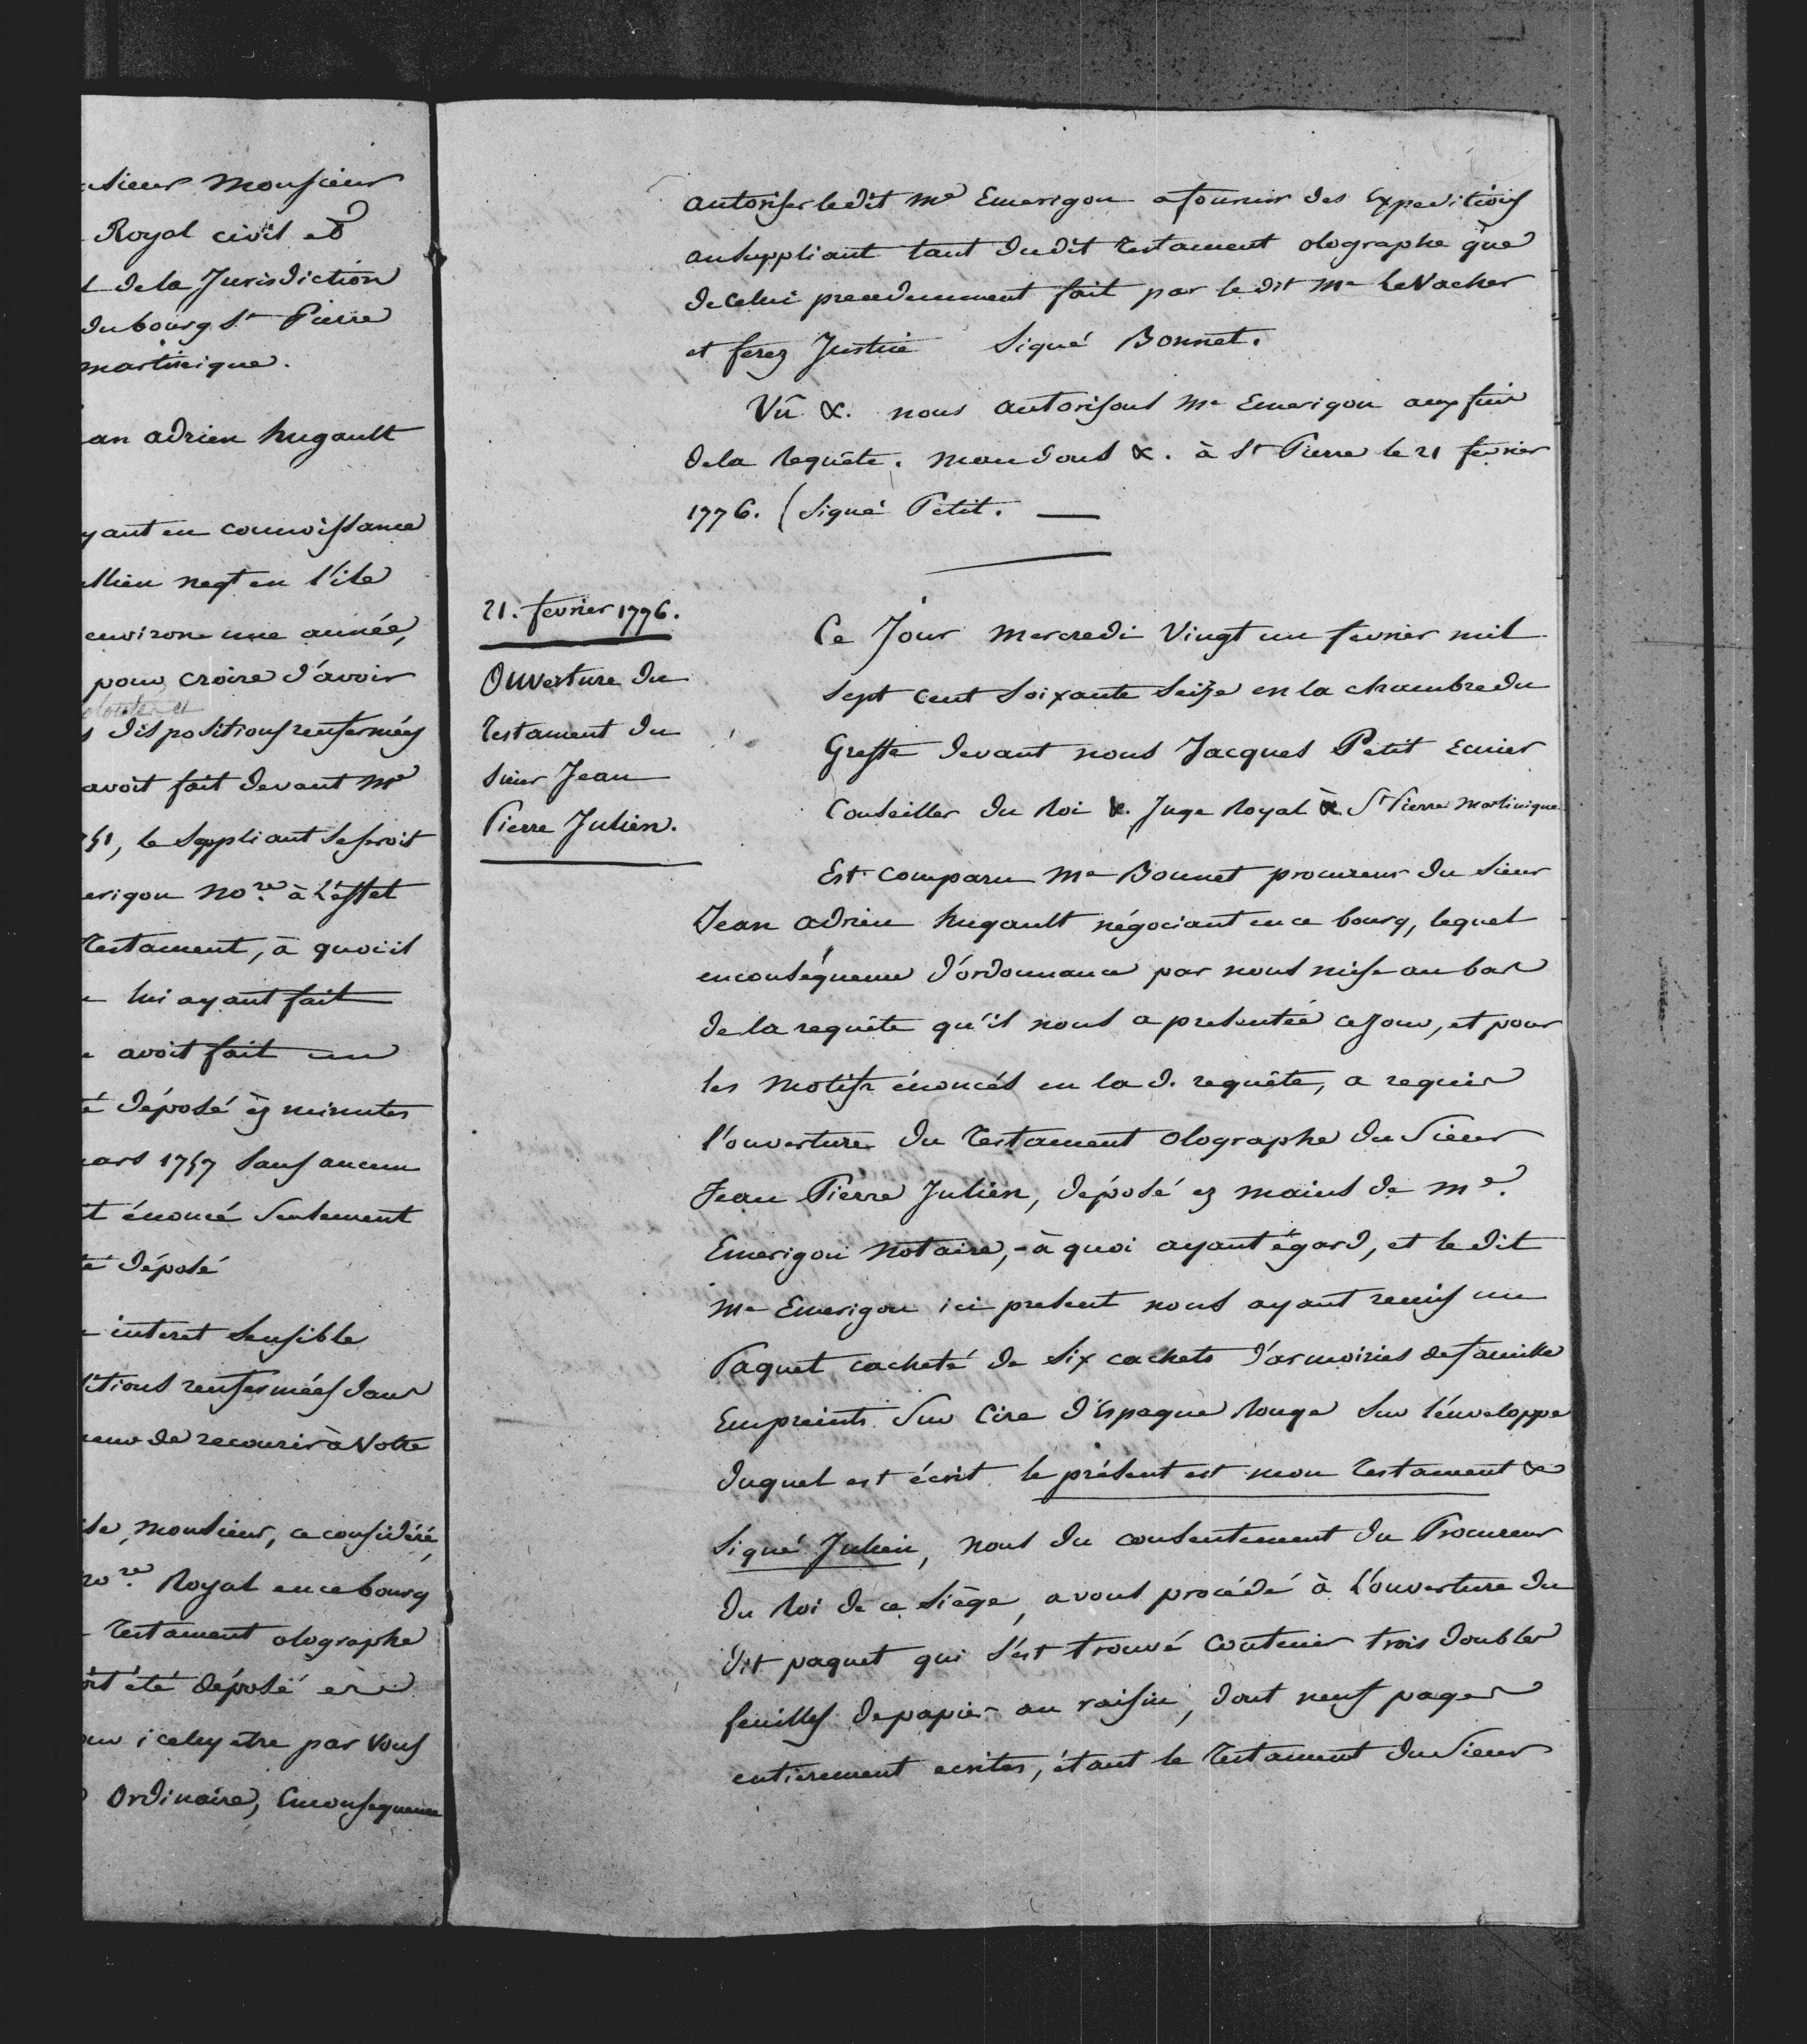 sieur Monsieur
Royal civil et
de la Jurisdiction
du bourg St Pierre
martinique.
an adrien hugault
yant eu connoissance
ullien negt en l'ile
environ une année,
pour croire d'avoir
dispositions renfermées
avoit fait devant Me
51, le Suppliant Seseroit
erigon nore à L'effet
testament, à quoi il
lui ayant fait
avoit fait un
é déposé ez minutes
ars 1757 sans aucun
t énoncé Seulement
té déposé
interet Sensible
itions renfermées dans
de recourir à Votre
monsieur, ce considéré,
nore Royal en ce bourg
testament olographe
oit été déposé
icelluy etre par vous
Ordinaire, Enconsequence
autoriser ledit Me Emerigon a fournir des Expeditions
au Suppliant tant dudit testament olographe que
de celui precedemment fait par le dit Me LeVacher
et ferez Justice Signé Bonnet.
Vû &. nous autorisons Me Emerigon aux fins
dela requête. mandons &. à St Pierre le 21 fevrier
1776. (Signé Petit. —
21. fevrier 1776.
Ouverture du
testament du
Sieur Jean
Pierre Julien.
Ce Jour Mercredi Vingt un fevrier mil
Sept cent Soixante Seize en la chambre du
Greffe devant nous Jacques Petit Ecuier
Conseiller du Roi &. Juge Royal à St Pierre Martinique
Est comparu Me Bonnet procureur du Sieur
Jean adrien hugault négociant en ce bourg, lequel
en conséquence d'ordonnance par nous mise au bas
de la requête qu'il nous a presentée ce jour, et pour
les motifs énoncés en la d. requête, a requis
l'ouverture du testament olographe du Sieur
Jean Pierre Julien, déposé ez mains de Me.
Emerigon Notaire, - à quoi ayant égard, et le dit
Me Emerigon ici present nous ayant remis un
Paquet cacheté de Six cachets d'armoiries de famille
Empreints Sur Cire d'Espagne Rouge Sur l'enveloppe
duquel est écrit le présent est mon testament &
Signé Julien, nous du consentement du Procureur
du Roi de ce Siège, avons procédé à L'ouverture du
dit paquet qui s'est trouvé Contenir trois doubles
feuilles de papier au raisin, dont neuf pages
entierement ecrites, étant le testament du Sieur